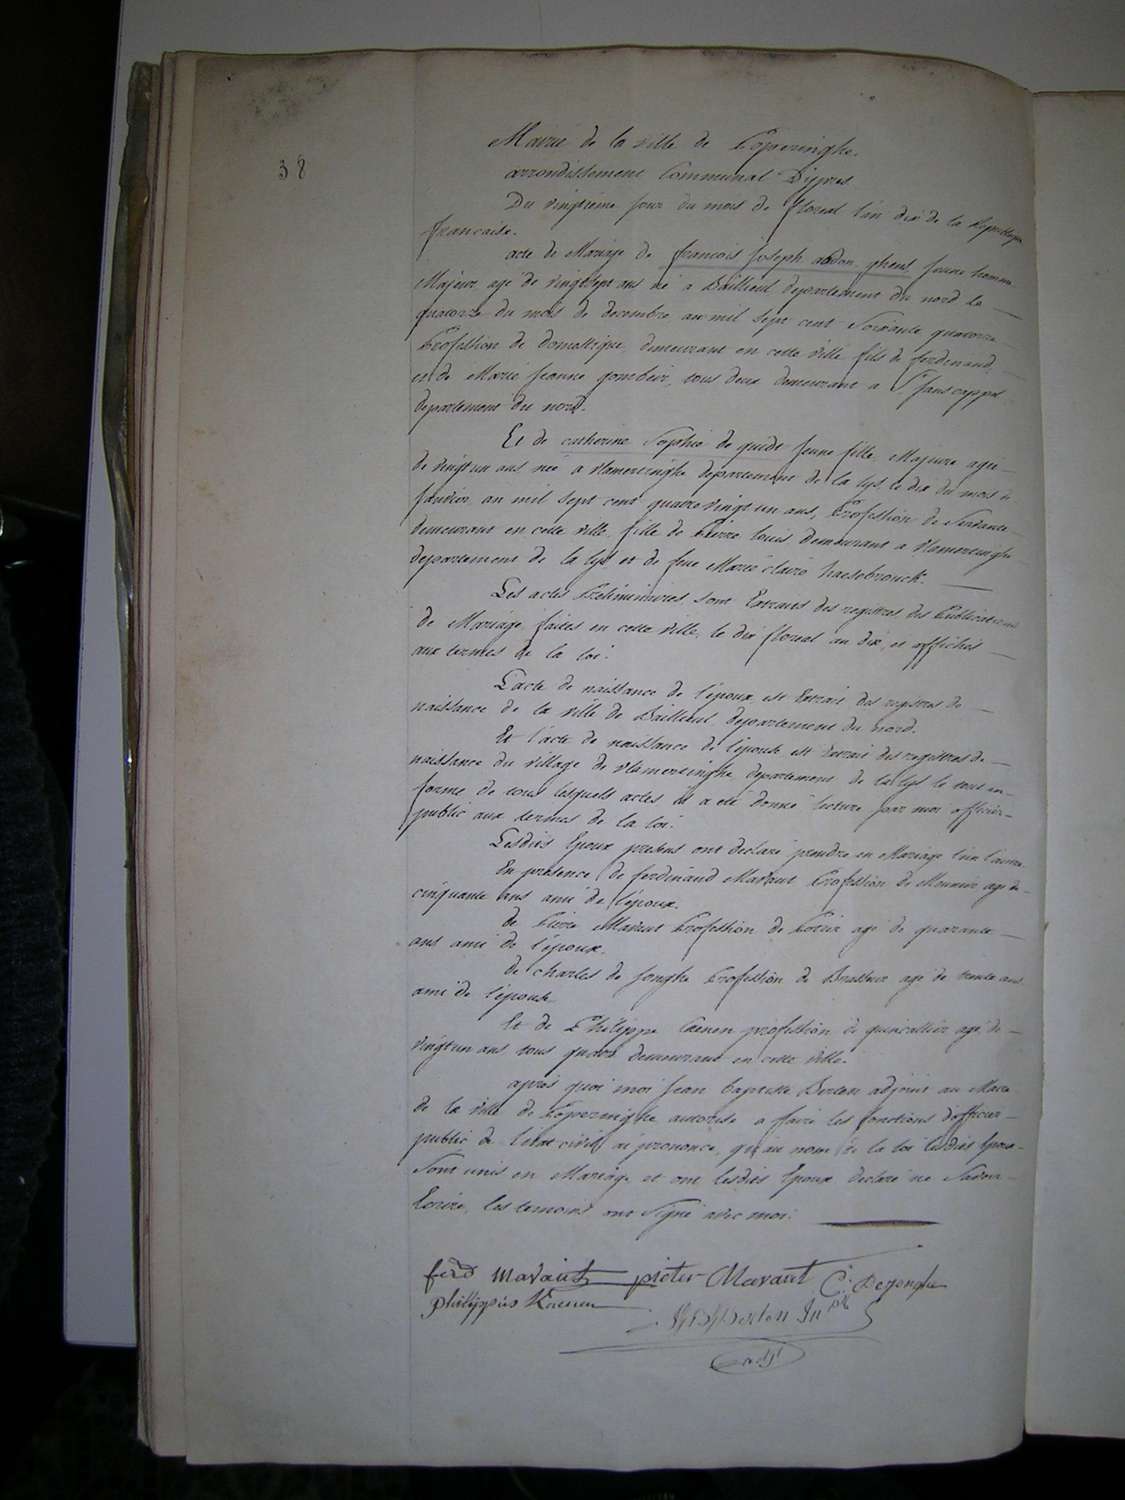 38
Mairie de la ville de Poperinghe.
arrondissement Communal D'ypres
Du vingtieme jour du mois de floreal l'an dix de la Republique
francaise.
acte de Mariage de francois Joseph abdon gheus jeune homme
Majeur agé de vingtsept ans né a Baillieul departement du nord le
quatorze du mois de decembre an mil sept cent Soixante quatorze
Profession de domestique demeurant en cette ville fils de ferdinand
et de Marie jeanne gombeir, tous deux demeurant a St Jans cappel
departement du nord.
Et de catherine Sophie de quidt jeune fille Majeure agée
de vingtun ans née a vlamertinghe departement de la lys le dix du mois de
janvier an mil sept cent quatre vingt un ans, Profession de Servante
demeurant en cette ville, fille de Pierre louis demeurant a vlamertinghe
departement de la lys et de feue Marie claire haesebrouck.
Les actes Preliminaires sont Extraits des registres des Publications
de Mariage faites en cette ville, le dix floreal an dix, et affichés
aux termes de la loi.
L'acte de naissance de l'epoux est Extrait des registres de
naissance de la ville de Baillieul departement du nord.
Et l'acte de naissance de l'epouse est Extrait des registres de
naissance du village de vlamertinghe departement de la lys le tout en
forme de tous lesquels actes il a eté donné lecture par moi officier
public aux termes de la loi.
Lesdits Epoux presens ont declaré prendre en Mariage l'un l'autre
En presence de ferdinand Mavaut Profession de Meunier agé de
cinquante ans ami de l'epoux.
de Pierre Mavaut Profession de agé de quarante
ans ami de l'epoux.
de charles de jonghe Profession de Brasseur agé de trente ans
ami de l'epouse
Et de Philippe Coenen profession de quincallier agé de
vingtun ans tous quatre demeurant en cette ville.
après quoi moi jean baptiste Berten adjoint au Maire
de la ville de Poperinghe autorisé a faire les fonctions d'officier
public de l'etat civil ai prononcé, qu'au nom de la loi lesdits Epoux
Sont unis en Mariage et ont lesdits Epoux declaré ne Savoir
Ecrire, les temoins ont Signé avec moi.
ferd mavaut pieter Mavaut C. Dejonghe
philippus Koenen
JB Berten
adjt